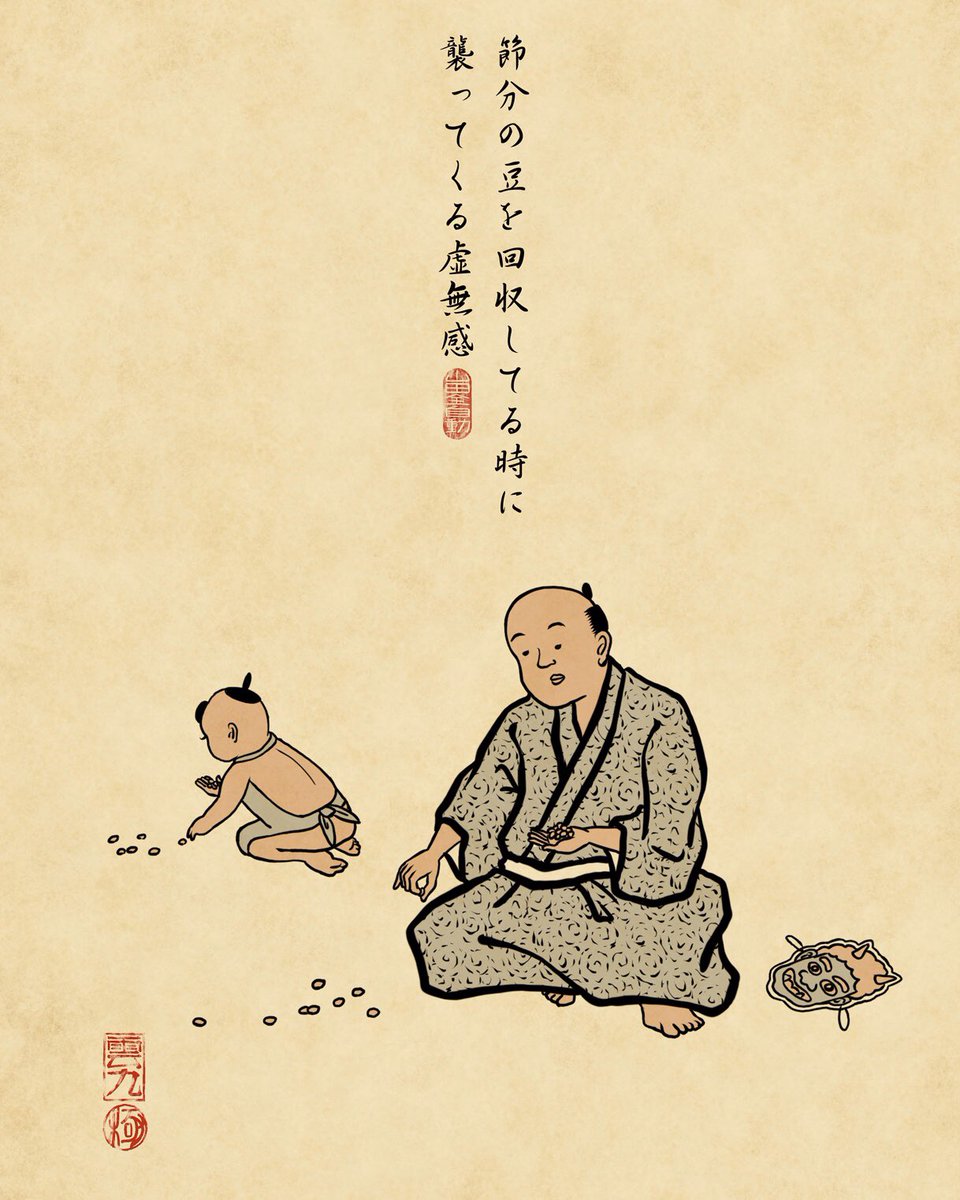 節分の豆を回収してる時に
襲ってくる虚無感